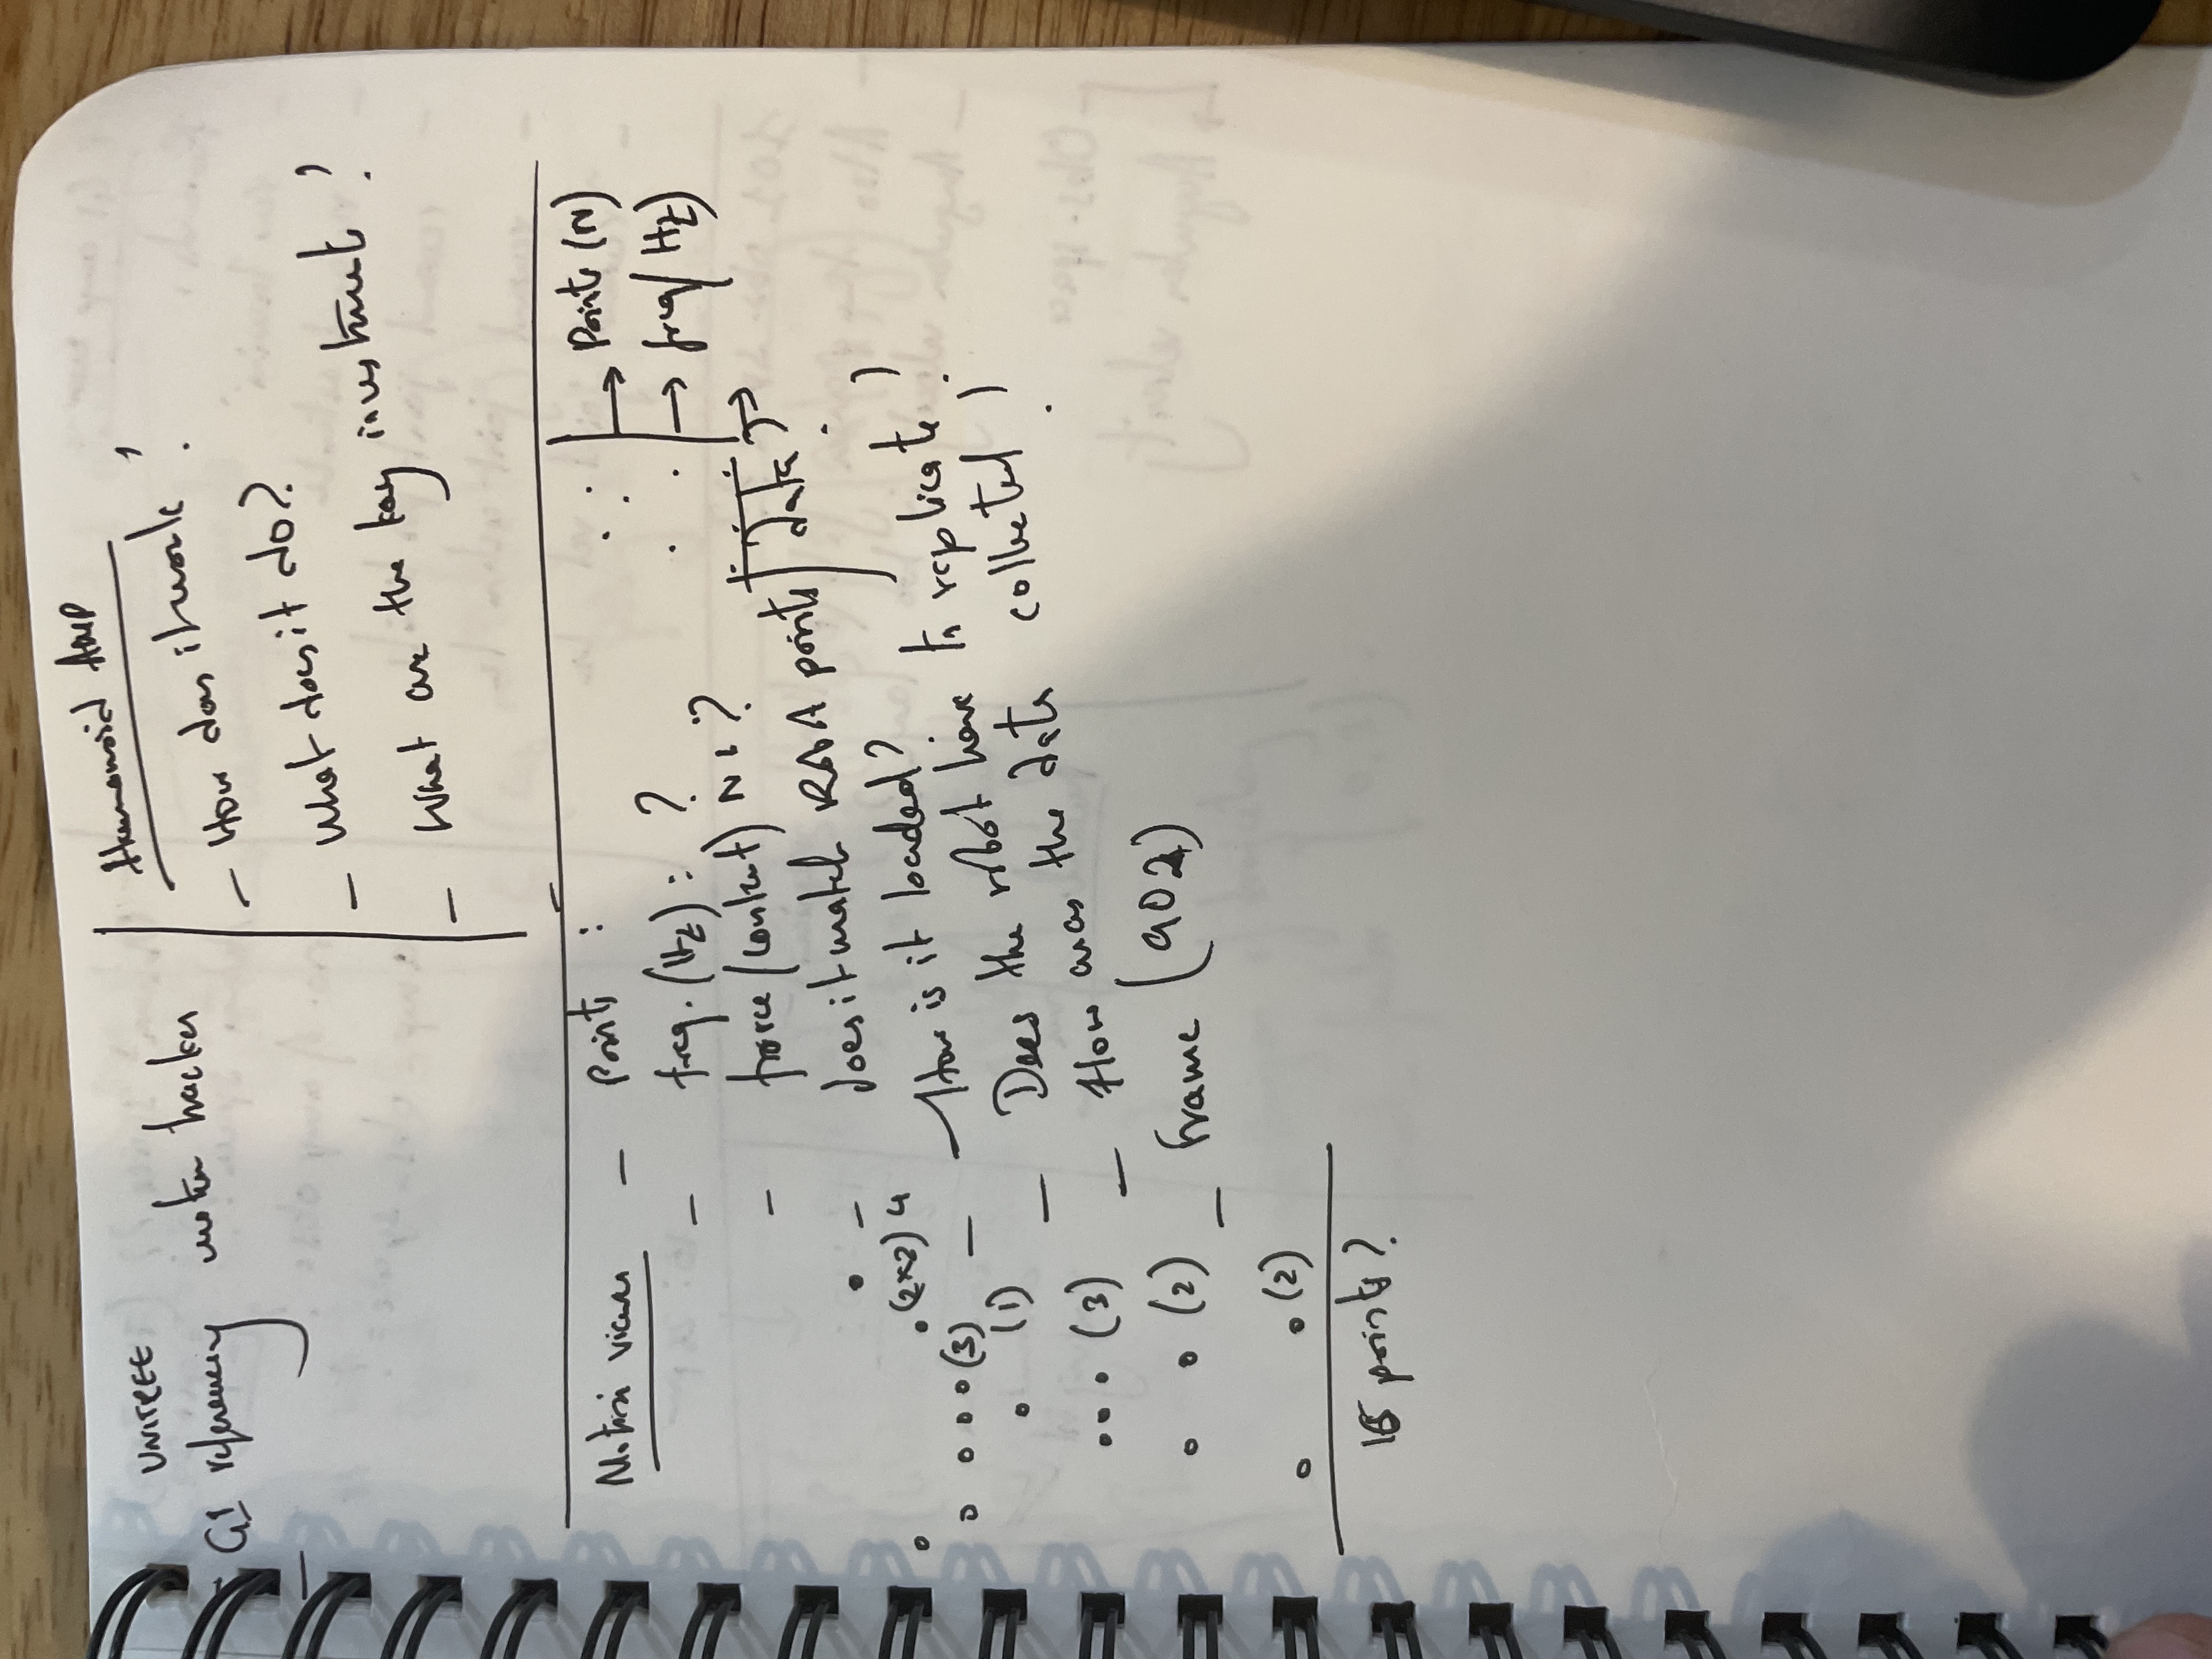 UNITREE
- G1 referencing motion tracker
-
Humanoid AMP
- How does it work?
- What does it do?
- What are the key investments?
Motion viewer - Points :
- freq. (Hz) : ?
- force (contact) N : ?
- does it match points / data?
(2x2) 4 - How is it loaded?
(3) - Does the robot have to replicate?
(1) - How was the data collected?
(3)
(2) - Frame (902)
(2)
points?
→ Points (N)
→ freq (Hz)
→